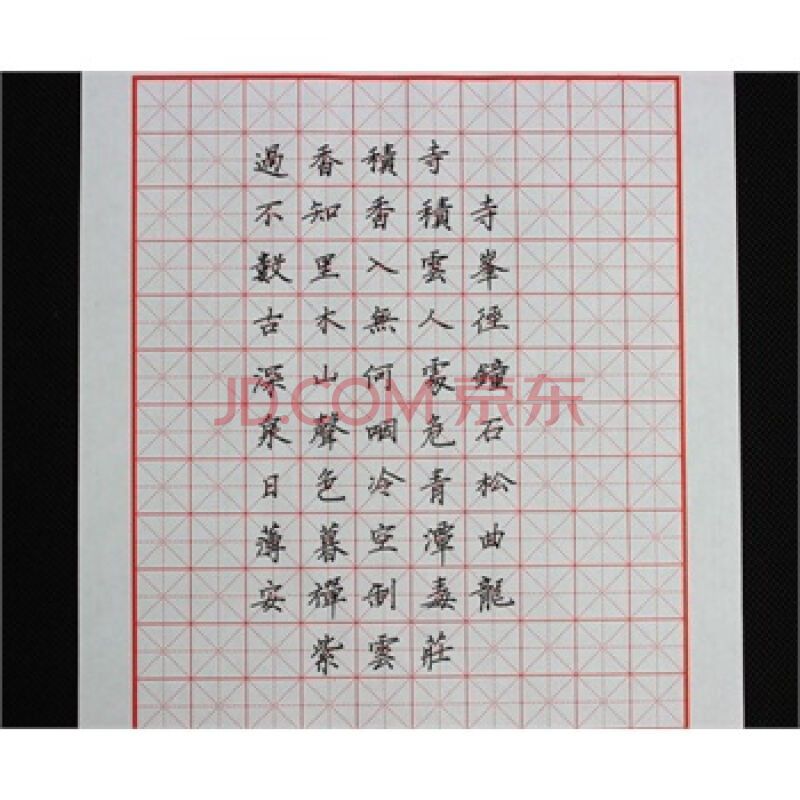 過香積寺
不知香積寺
數里入雲峯
古木無人徑
深山何處鐘
泉聲咽危石
日色冷青松
薄暮空潭曲
安禪制毒龍
紫雲莊
JD.COM 京东